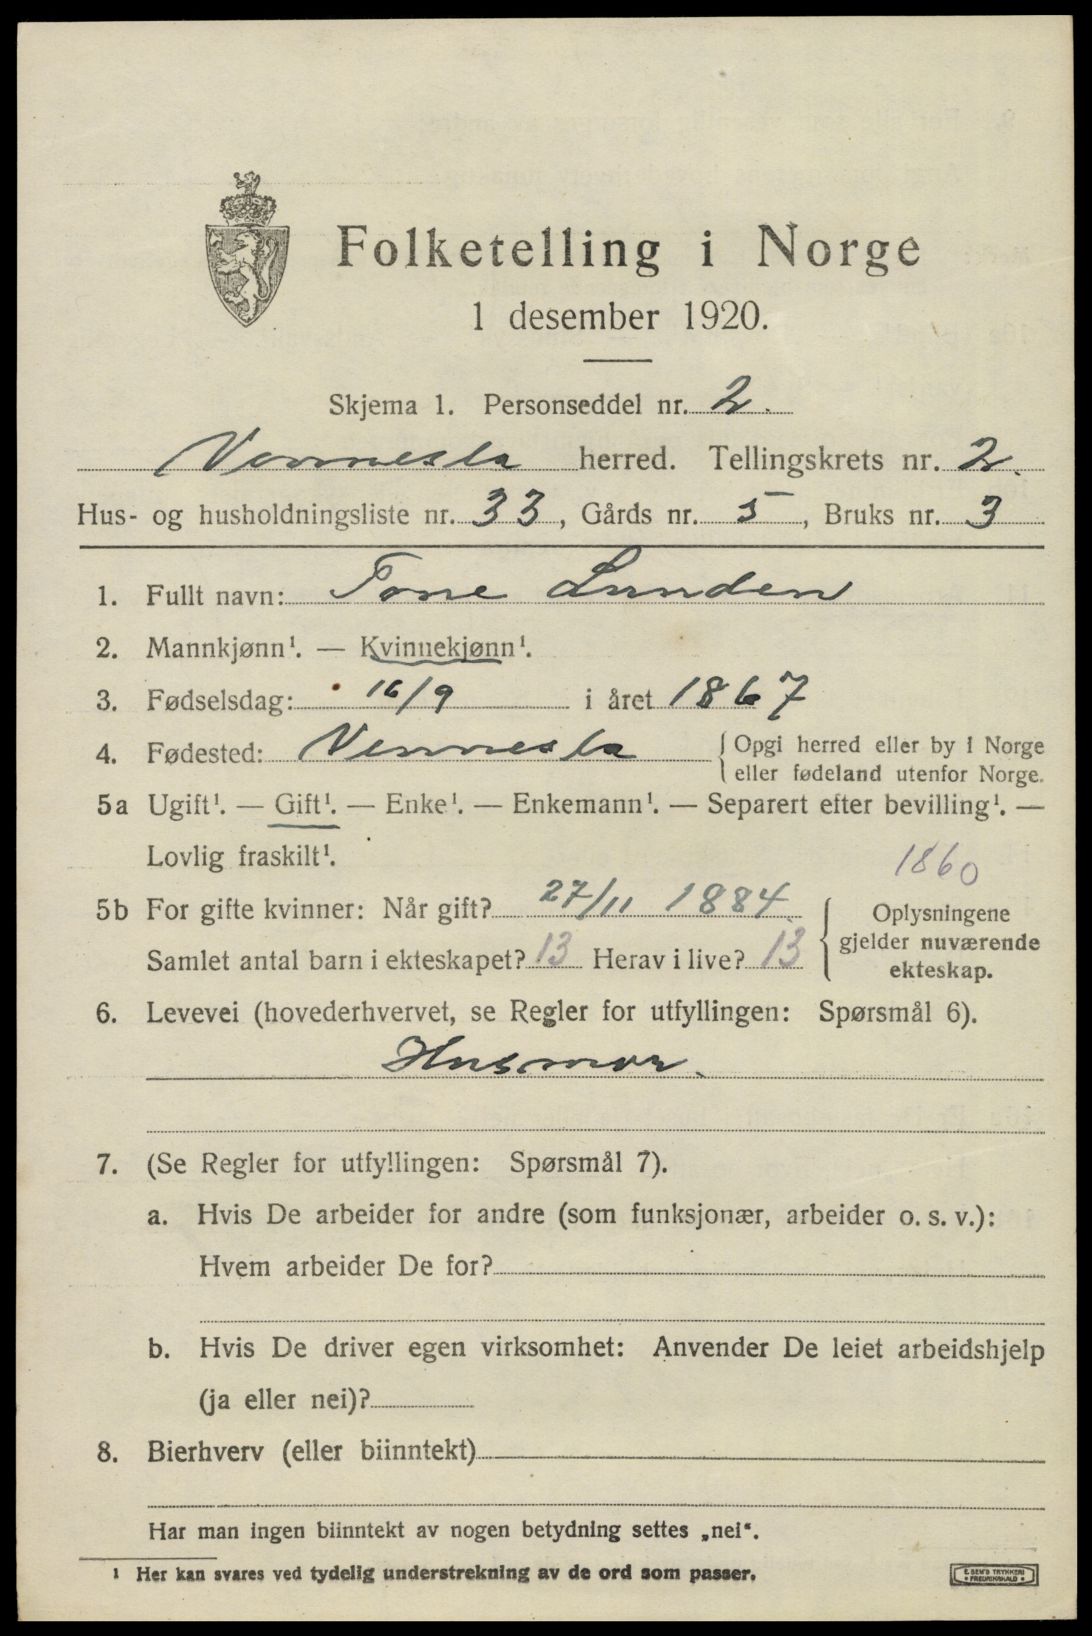 Folketelling i Norge
1 desember 1920.
Skjema 1. Personseddel nr. 2.
Vennesla herred. Tellingskrets nr. 2.
Hus- og husholdningsliste nr. 33, Gårds nr. 5, Bruks nr. 3
1. Fullt navn: Tone Lunden
2. Mannkjønn¹. — Kvinnekjønn¹.
3. Fødselsdag: 16/9 i året 1867
4. Fødested: Vennesla { Opgi herred eller by i Norge
eller fødeland utenfor Norge.
5a Ugift¹. — Gift¹. — Enke¹. — Enkemann¹. — Separert efter bevilling¹. —
Lovlig fraskilt¹.
1860
5b For gifte kvinner: Når gift? 27/11 1884.
Samlet antal barn i ekteskapet? 13 Herav i live? 13
{ Oplysningene
gjelder nuværende
ekteskap.
6. Levevei (hovederhvervet, se Regler for utfyllingen: Spørsmål 6).
Husmor.
7. (Se Regler for utfyllingen: Spørsmål 7).
a. Hvis De arbeider for andre (som funksjonær, arbeider o. s. v.):
Hvem arbeider De for?
b. Hvis De driver egen virksomhet: Anvender De leiet arbeidshjelp
(ja eller nei)?
8. Bierhverv (eller biinntekt)
Har man ingen biinntekt av nogen betydning settes „nei“.
¹ Her kan svares ved tydelig understrekning av de ord som passer.
E. SEM'S TRYKKERI
FREDRIKSHALD